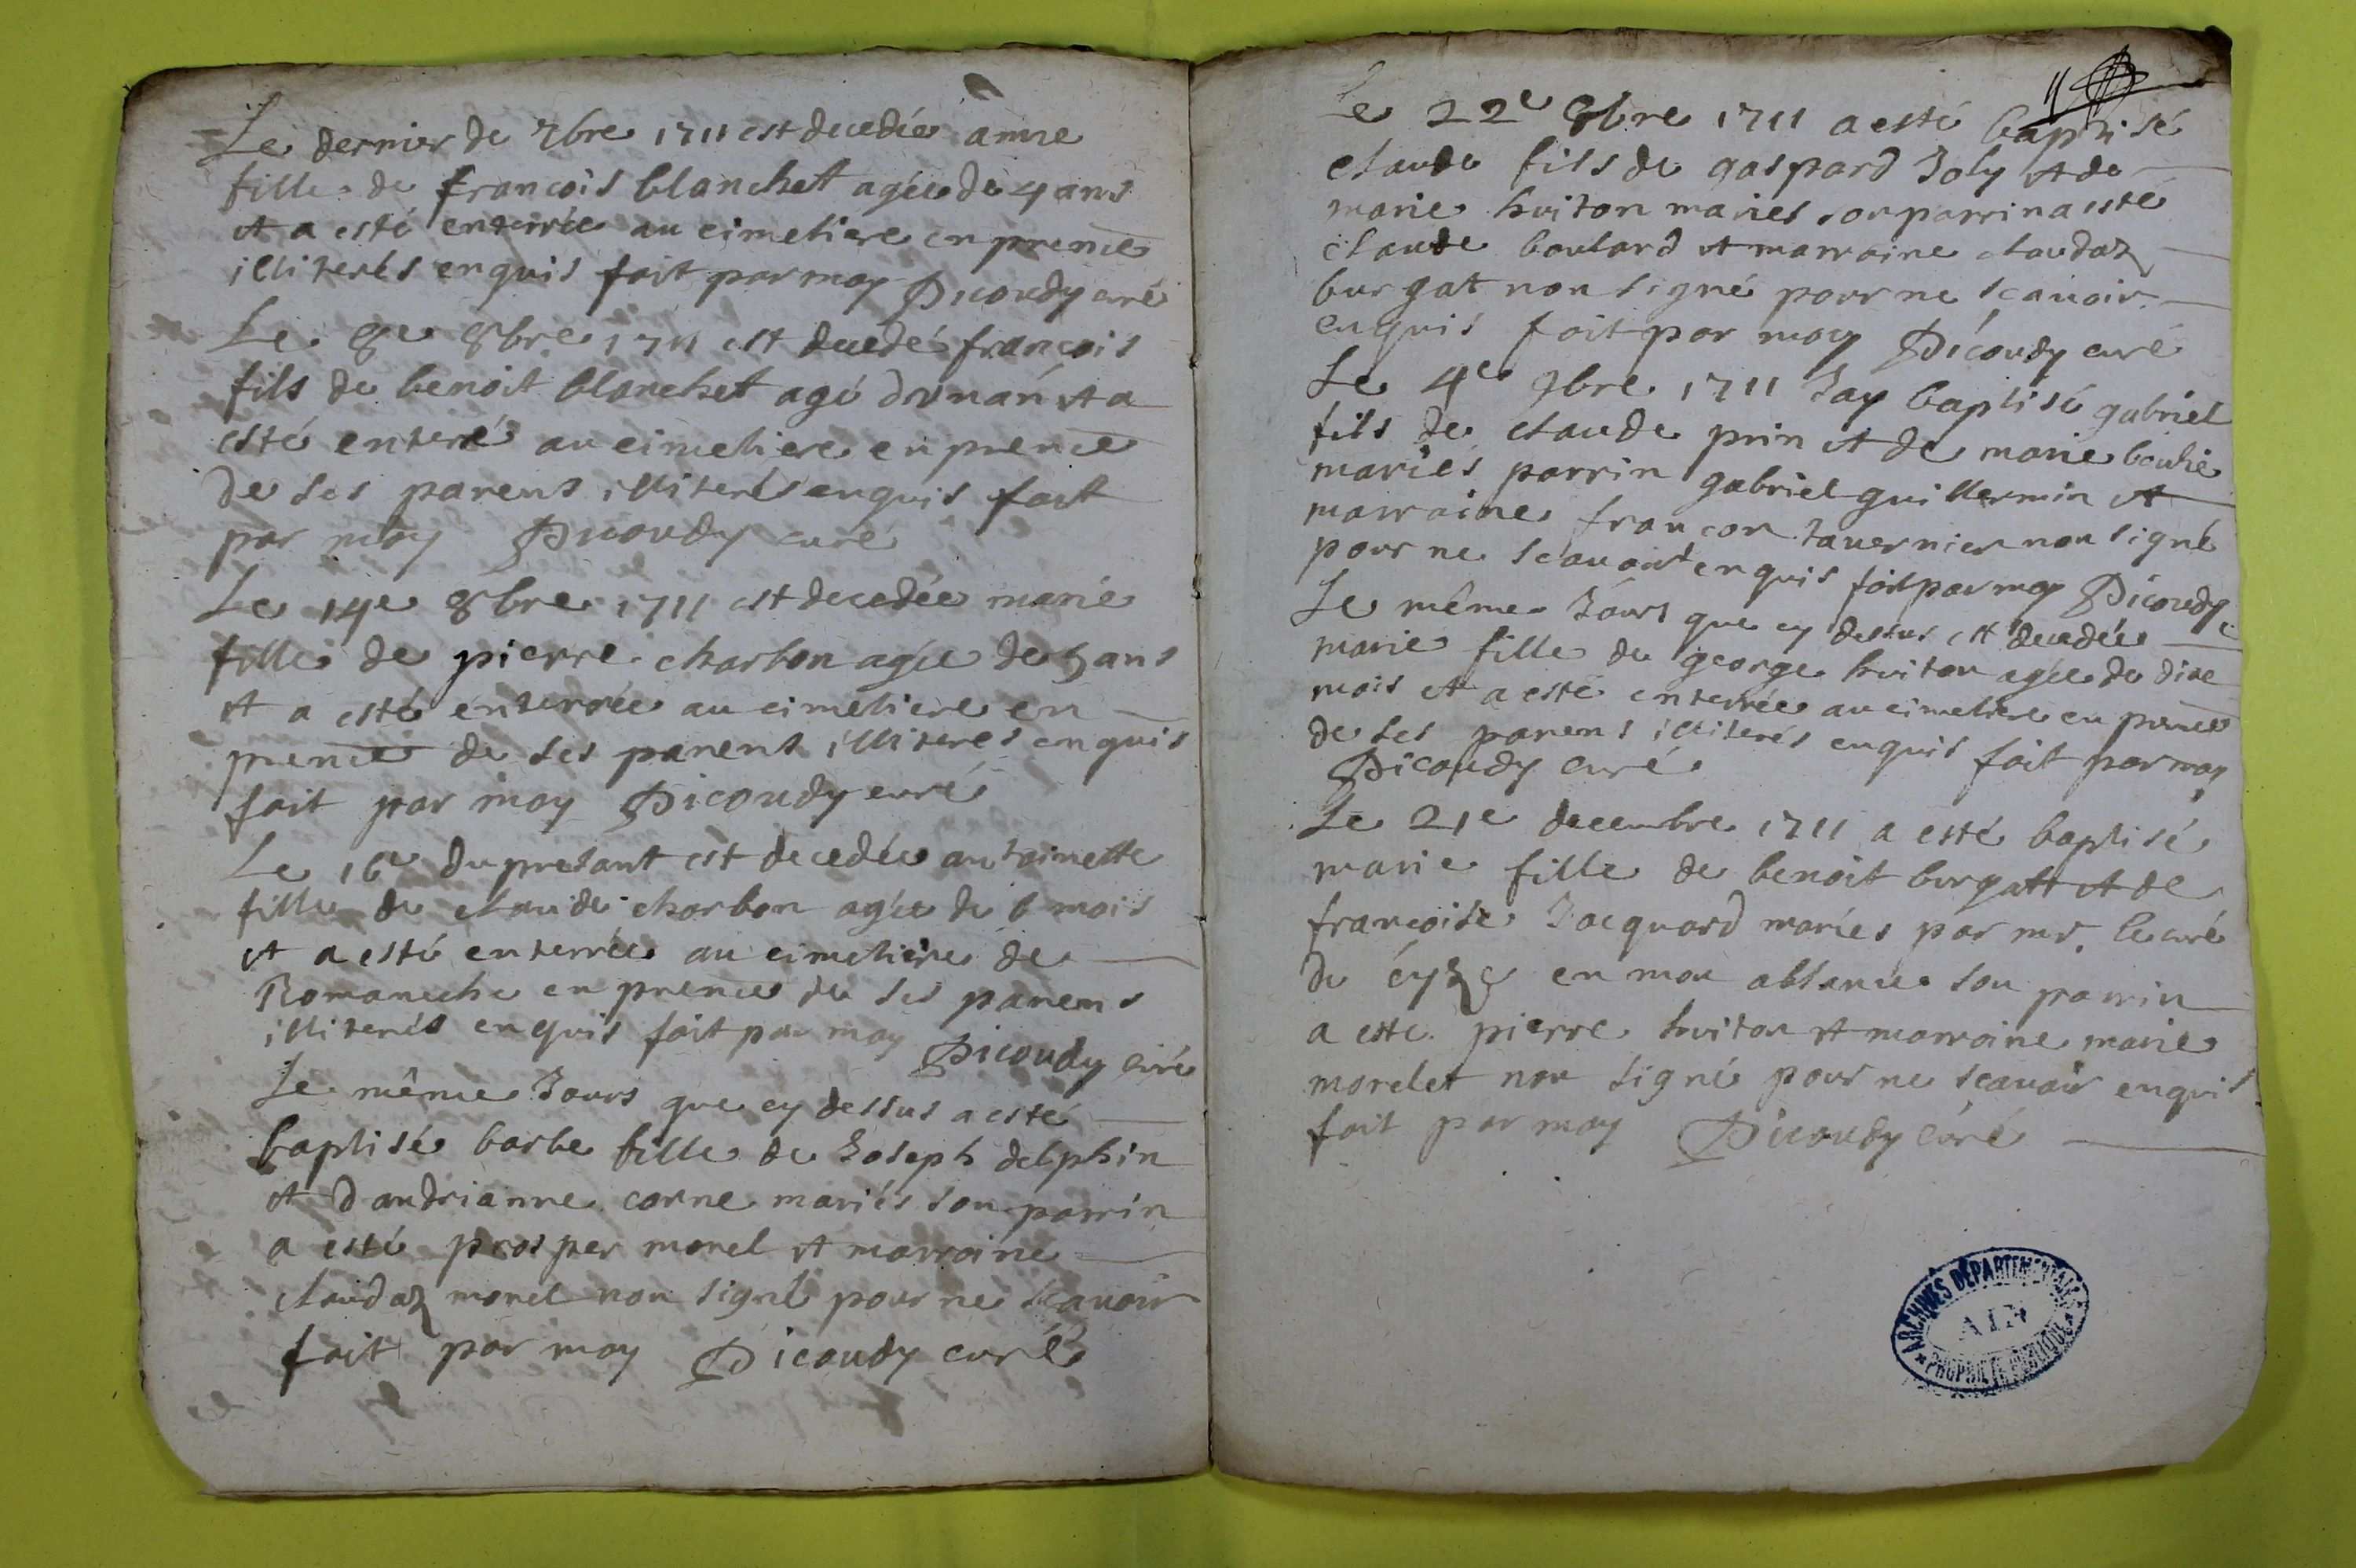 Le dernier de 7bre 1711 est decedée anne
fille de francois blanchet agée de 4 ans
et a esté enterrée au cimetiere en prence
illiterés enquis fait par moy Picoudy curé
Le 8e 8bre 1711 est decedé françois
fils de benoit blanchet agé d'un an et a
esté enteré au cimetiere en prence
de ses parens illiterés enquis fait
par moy Picoudy curé
Le 14e 8bre 1711 est decedée marie
fille de pierre charbon agée de 5 ans
et a esté enterrée au cimetiere en
prence de ses parens illiterés enquis
fait par moy Picoudy curé
Le 16e du presant est decedée antoinette
fille de claude charbon agée de 6 mois
et a esté enterrée au cimetiere de
Romaneche en prence de ses parens
illiterés enquis fait par moy Picoudy curé
Le même Jours que cy dessus a esté
baptisé barbe fille de Joseph delphin
et d'andrianne carne mariés son parrin
a esté prosper morel et marraine
claudaz morel non signé pour ne scavoir
fait par moy Picoudy curé
11
Le 22e 8bre 1711 a esté baptisé
claude fils de gaspard Joly et de
marie huiton mariés son parrin a esté
claude boulard et marraine claudaz
burgat non signé pour ne scavoir
enquis fait par moy Picoudy curé
Le 4e 9bre 1711 Jay baptisé gabriel
fils de claude prin et de marie bouhié
mariés parrin gabriel guillermin et
marraine françon tavernier non signé
pour ne scavoir enquis fait par moy Picoudy c
Le même Jours que cy dessus est decedée
marie fille de george huiton agée de dixe
mois et a esté enterrée au cimetiere en prence
de ses parens illiterés enquis fait par moy
Picoudy curé
Le 21e decembre 1711 a esté baptisé
marie fille de benoit burgatt et de
françoise Jacquard mariés par mr. le curé
de éyze en mon absance son parrin
a esté pierre huiton et marraine marie
morelet non signé pour ne scavoir enquis
fait par moy Picoudy curé
ARCHIVES DÉPARTEMENTALES
AIN
PROPRIÉTÉ PUBLIQUE